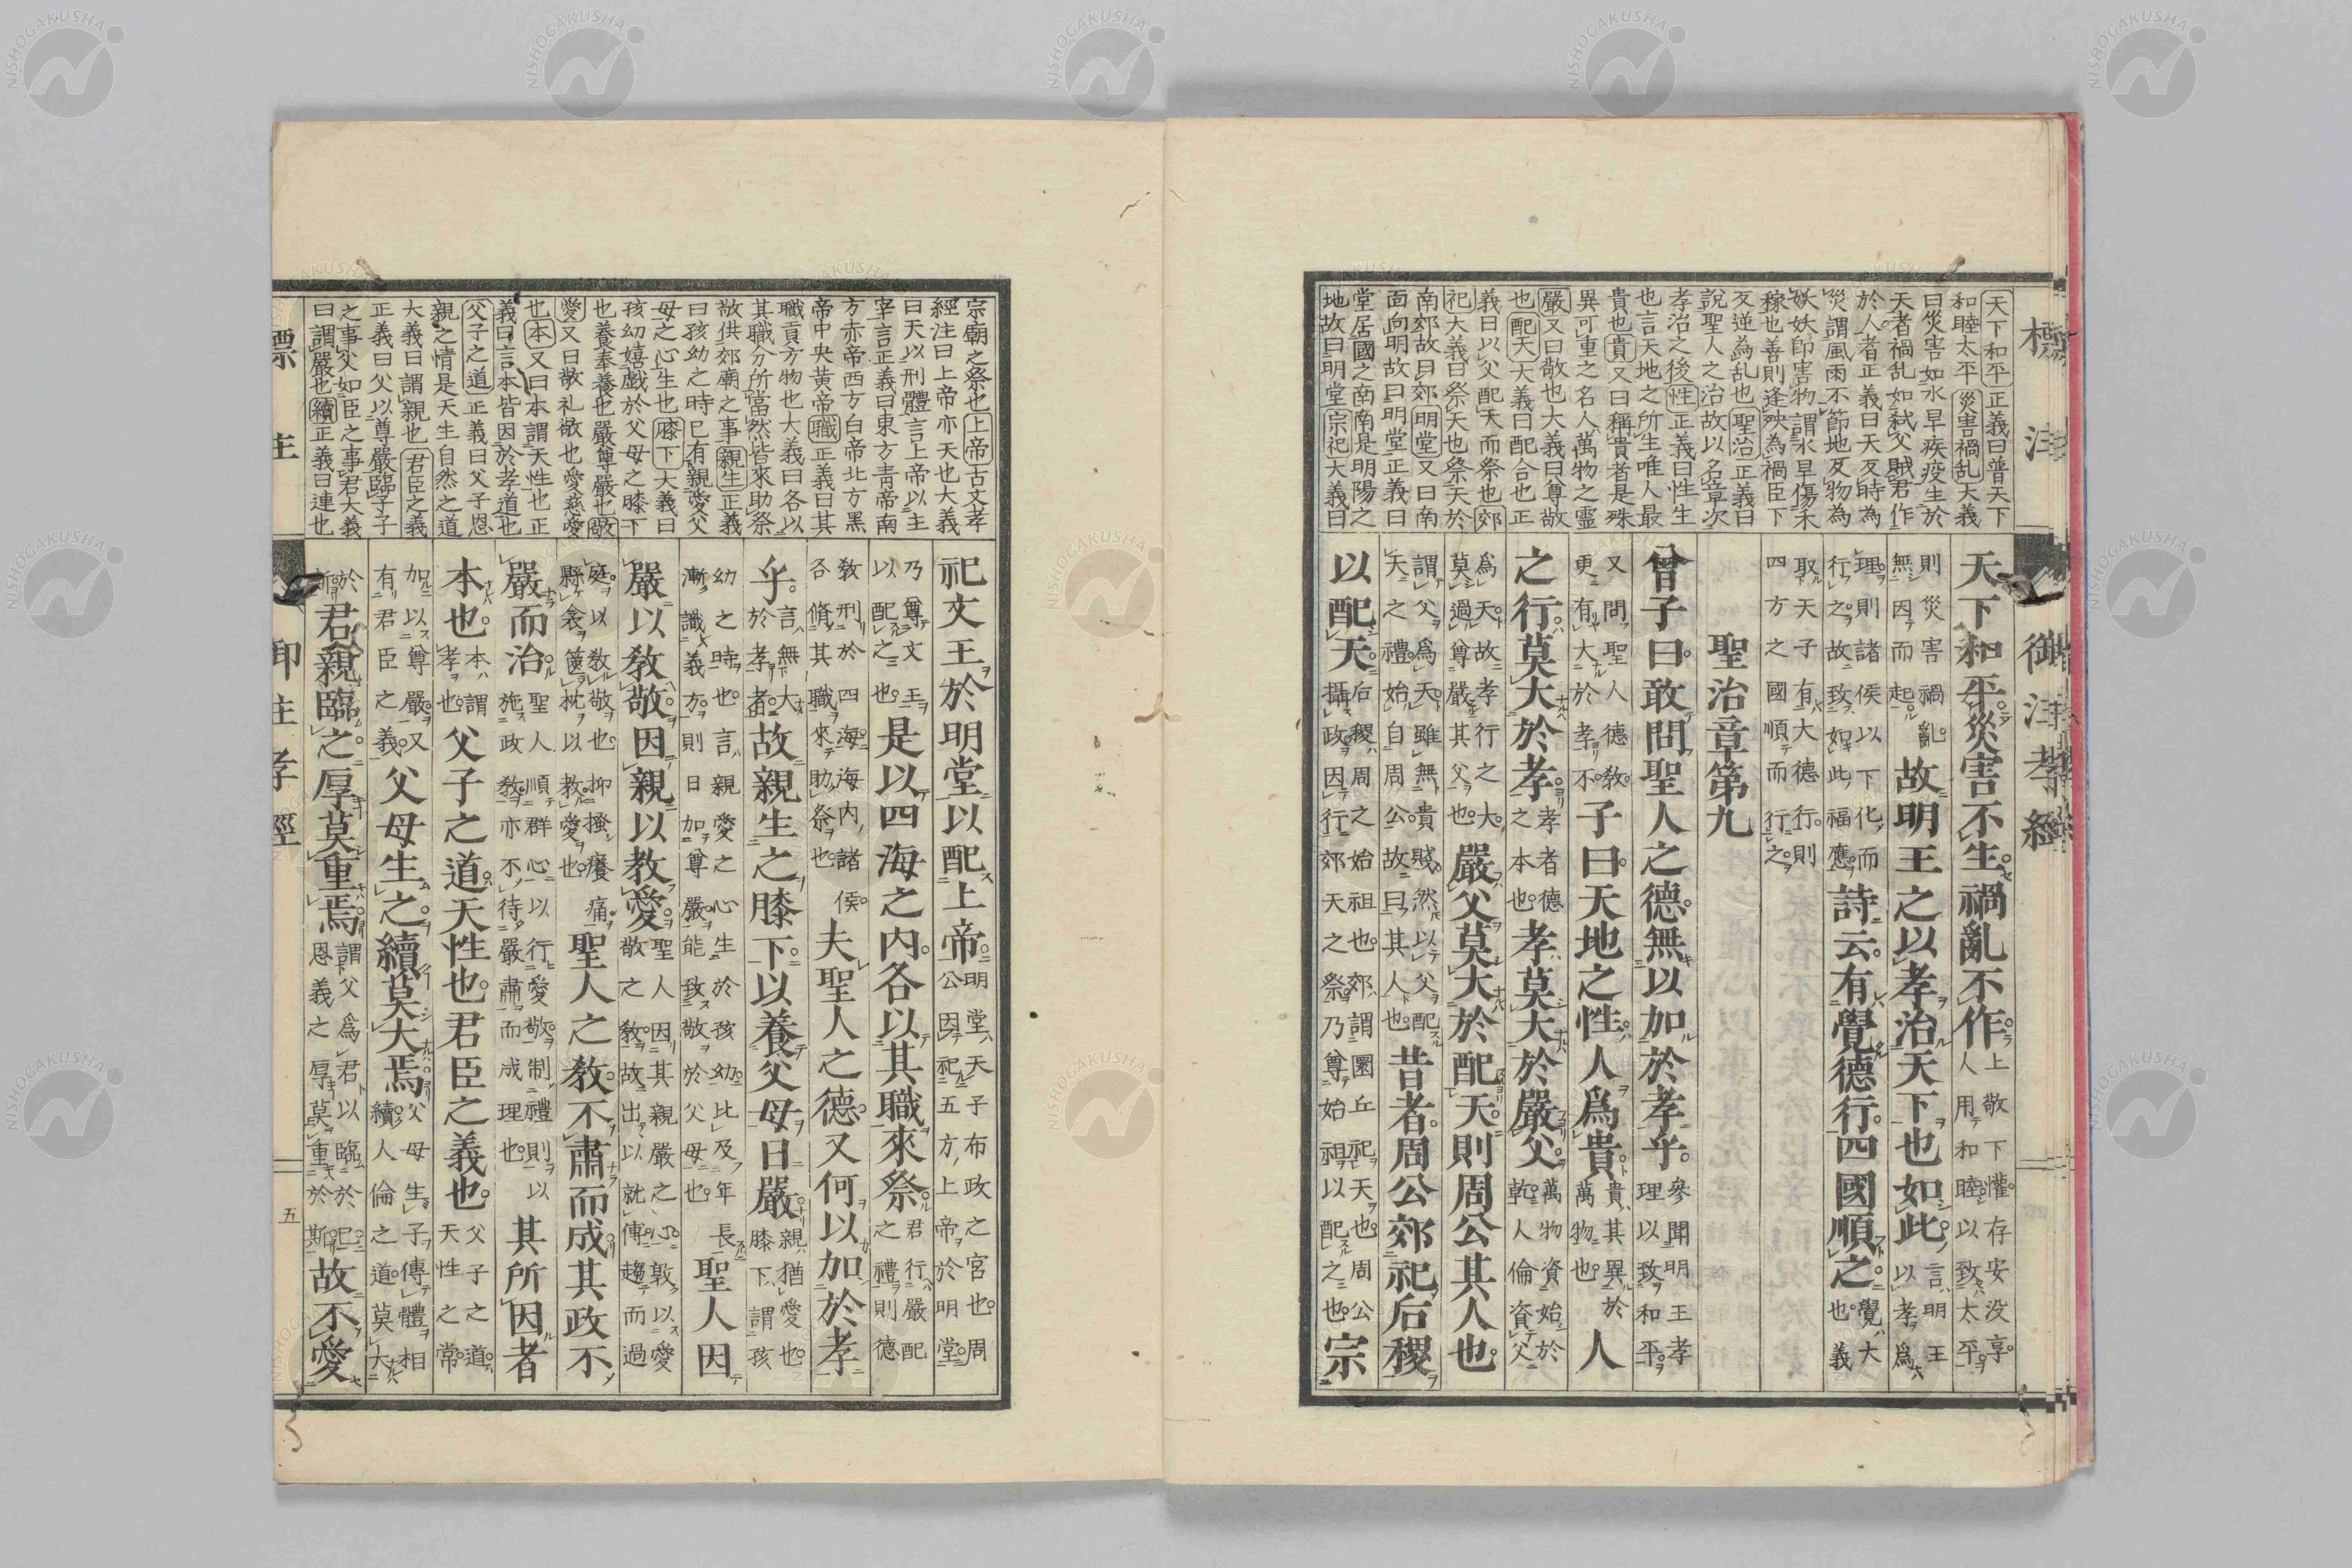 標注　御注孝經
天下和平正義曰普天下
和睦太平災害禍乱大義
曰災害如水旱疾疫生於
天者禍乱如弑父賊君作
於人者正義曰天反時為
災謂風雨不節地反物為
妖妖即害物謂水旱傷禾
稼也善則逢殃為禍臣下
反逆為乱也聖治正義曰
說聖人之治故以名章次
孝治之後性正義曰性生
也言天地之所生唯人最
貴也貴又曰稱貴者是殊
異可重之名人萬物之靈
嚴又曰敬也大義曰尊敬
也配天大義曰配合也正
義曰以父配天而祭也郊
祀大義曰祭天也祭天於
南郊故曰郊明堂又曰南
面向明故曰明堂正義曰
堂居國之南南是明陽之
地故曰明堂宗祀大義曰
天下和平災害不生禍亂不作上敬下懽存安没享人用和睦以致太平
則災害禍亂無因而起故明王之以孝治天下也如此言明王以孝爲
理則諸侯以下化而行之故致如此福應詩云有覺德行四國順之覺大也義
取天子有大德行則四方之國順而行之
聖治章第九
曾子曰敢問聖人之德無以加於孝乎參聞明王孝理以致和平
又問聖人德敎更有大於孝不子曰天地之性人爲貴貴其異於萬物也人
之行莫大於孝孝者德之本也孝莫大於嚴父萬物資始於乾人倫資父
爲天故孝行之大莫過尊嚴其父也嚴父莫大於配天則周公其人也
謂父爲天雖無貴賎然以父配天之禮始自周公故曰其人也昔者周公郊祀后稷
以配天后稷周之始祖也郊謂圜丘祀天也周公攝政因行郊天之祭乃尊始祖以配之也宗
宗廟之祭也上帝古文孝
經注曰上帝亦天也大義
曰天以刑體言上帝以主
宰言正義曰東方青帝南
方赤帝西方白帝北方黑
帝中央黄帝職正義曰其
職貢方物也大義曰各以
其職分所當然皆來助祭
敬供郊廟之事親生正義
曰孩幼之時已有親愛父
母之心生也膝下大義曰
孩幼嬉戯於父母之膝下
也養奉養也嚴尊嚴也敬
愛又曰敬礼敬也愛慈愛
也本又曰本謂天性也正
義曰言本皆因於孝道也
父子之道正義曰父子恩
親之情是天生自然之道
大義曰謂親也君臣之義
正義曰父以尊嚴臨子子
之事父如臣之事君大義
曰謂嚴也續正義曰連也
祀文王於明堂以配上帝明堂天子布政之宮也周公因祀五方上帝於明堂
乃尊文王以配之也是以四海之内各以其職來祭君行嚴配之禮則德
敎刑於四海海内諸侯各脩其職來助祭也夫聖人之德又何以加於孝
乎言無大於孝者故親生之膝下以養父母日嚴親猶愛也膝下謂孩
幼之時也言親愛之心生於孩幼比及年長漸識義方則日加尊嚴能致敬於父母也聖人因
嚴以敎敬因親以敎愛聖人因其親嚴之心敦以愛敬之敎故出以就傅趨而過
庭以敎敬也抑搔癢痛縣衾篋枕以敎愛也聖人之敎不肅而成其政不
嚴而治聖人順群心以行愛敬制禮則以施政敎亦不待嚴肅而成理也其所因者
本也本謂孝也父子之道天性也君臣之義也父子之道天性之常
加以尊嚴又有君臣之義父母生之續莫大焉父母生子傳體相續人倫之道莫大
於斯君親臨之厚莫重焉謂父爲君以臨於已恩義之厚莫重於斯故不愛
標注　御注孝經　五
NISHOGAKUSHA